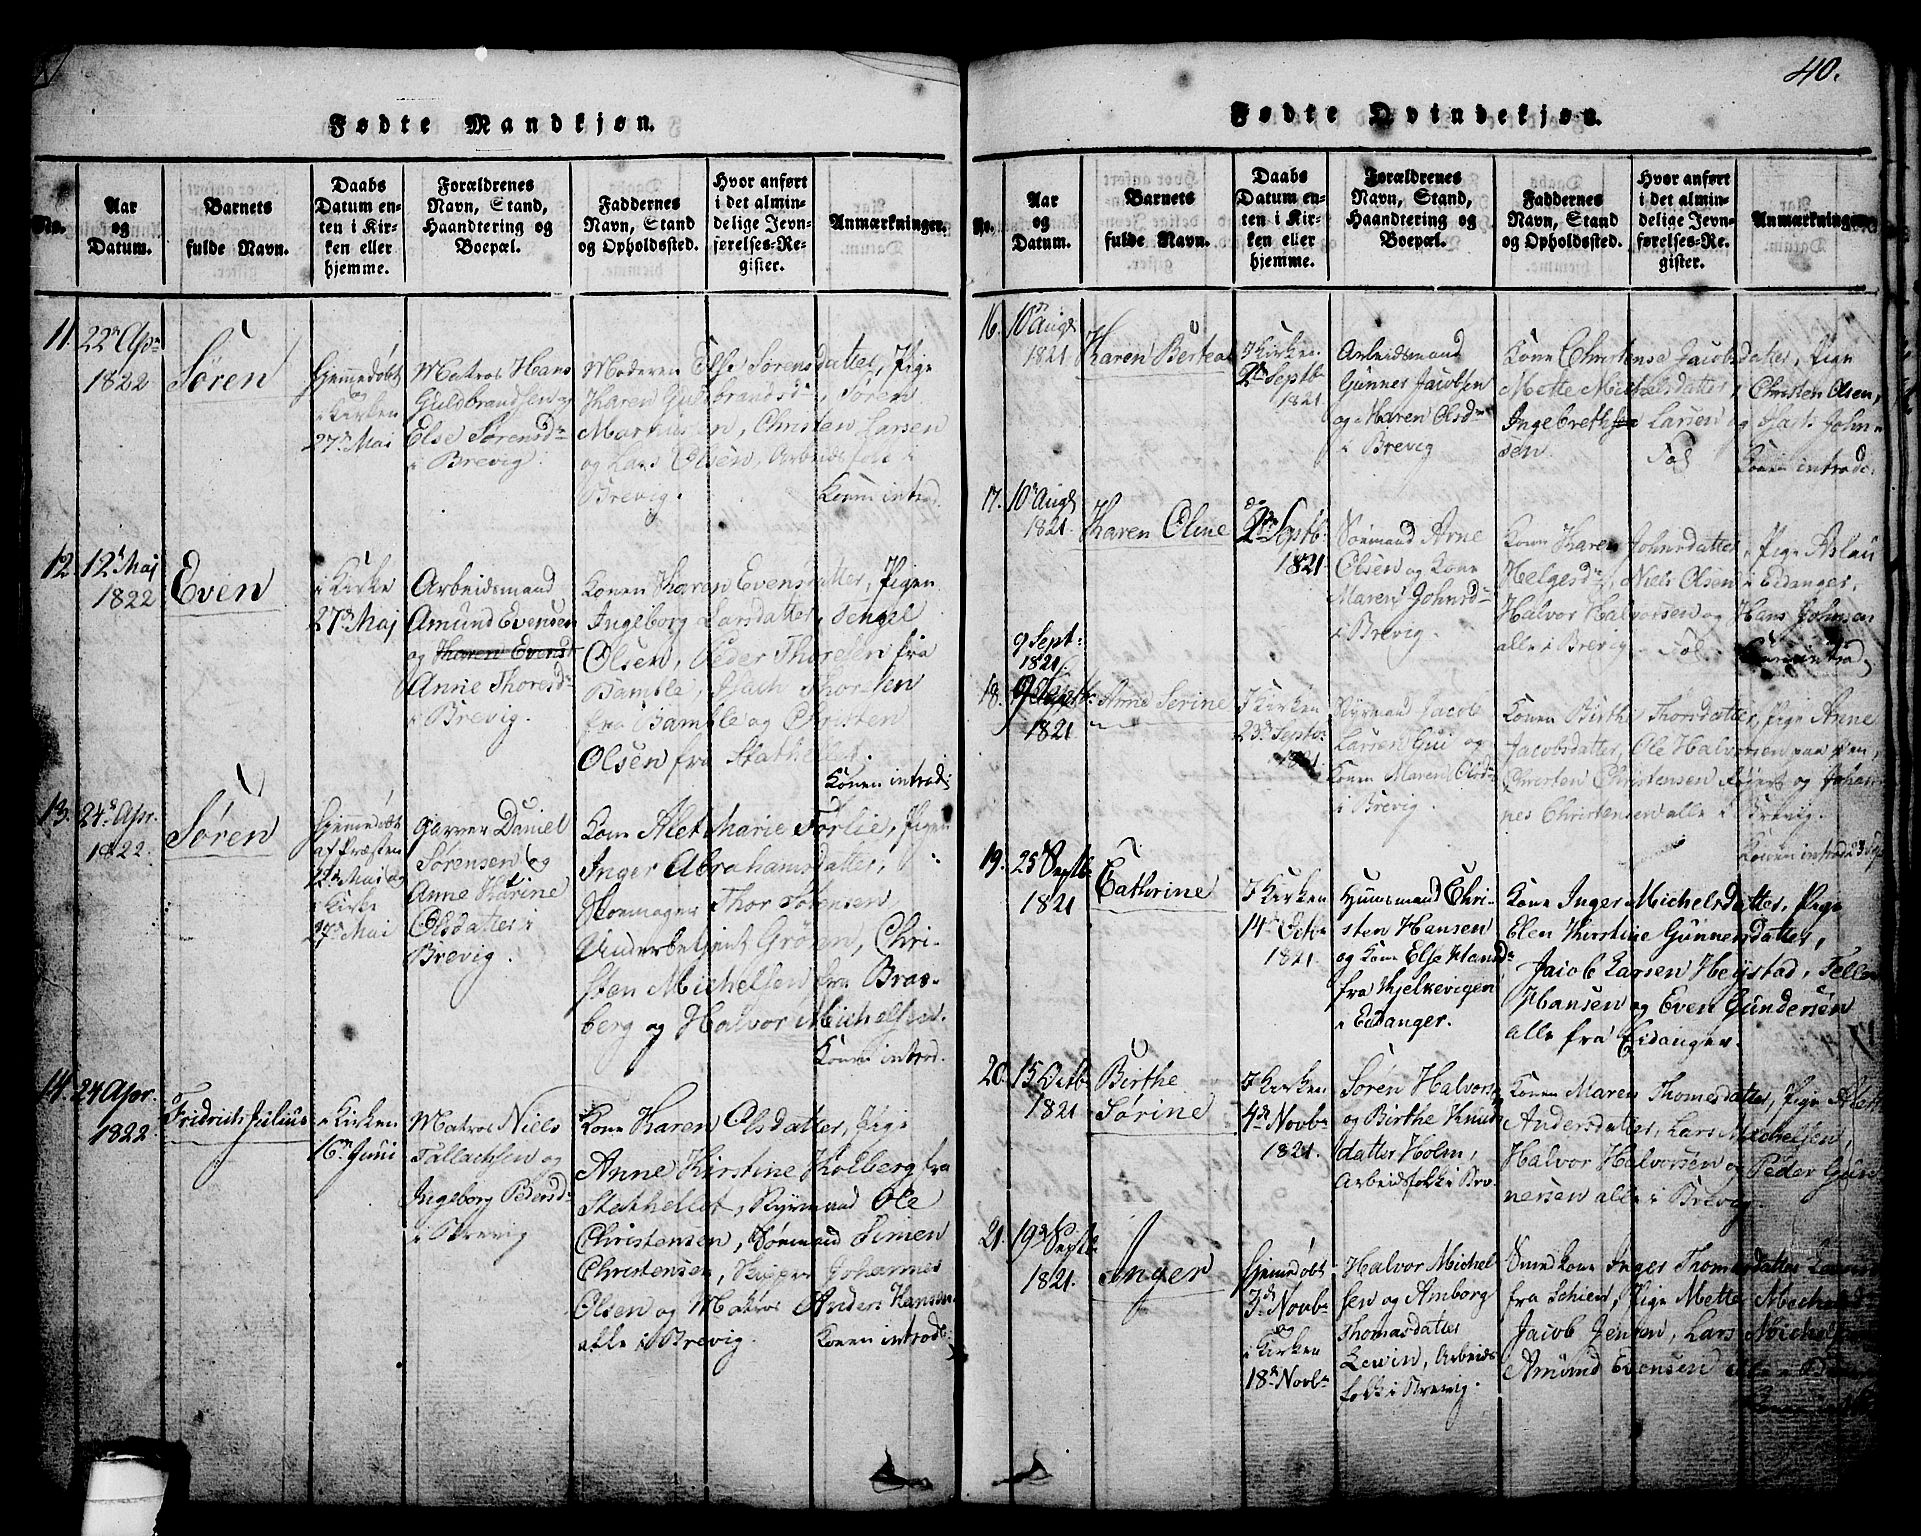 40.
Fødte Mandkjøn.
No.
Aar
og
Datum.
Barnets
fulde Navn.
Daabs
Datum en-
ten i Kir-
ken eller
hjemme.
Forældrenes
Navn, Stand,
Haandtering og
Boepæl.
Faddernes
Navn, Stand
og Opholdssted.
Hvor anført
i det almin-
delige Jevn-
førelses-Re-
gister.
Anmærkninger.
11.
22n Apr
1822
Søren
Hjemmedøbt
og
i Kirken
27n Mai
Matros Hans
Guldbrandsen og
Else Sørensd=
i Brevig.
Moderen Else Sørensdatter, Pige
Karen Guldbrandsd=, Søren
Markussen, Christen Larsen
og Lars Olsen, Arbeidsfolk i
Brevig.
Konen introd.
12.
12n Maj
1822
Even
i Kirke
27n Maj
Arbeidsmand
Amund Evensen
og Karen Evensd
Anne Thoresd=
i Brevig.
Konen Karen Evensdatter, Pigen
Ingeborg Larsdatter,
Olsen, Peder Thoresen fra
Bamble, Thorsen
fra Bamble og Christen
Olsen fra Stathellet.
Konen introd:
13.
24n Apr.
1822.
Søren
Hjemmedøbt
af Præsten
12n Mai og
i Kirke
27n Mai
Garver Daniel
Sørensen og
Anne Karine
Olsdatter i
Brevig.
Kone Alet Marie Forlie, Pigen
Inger Abrahamsdatter,
Skomager Thor Sørensen,
Underbetjent Grøen, Chri-
sten Michelsen fra Bras-
berg og Halvor Michelsen.
Konen introd.
14.
24 Apr.
1822.
Fridrich Julius
i Kirken
16n Juni
Matros Niels
Tallachsen og
Ingeborg Pedersd=
i Brevig
Kone Karen Olsdatter, Pige
Anne Kirstine Kolberg fra
Stathellet, Styrmand Ole
Christensen, Sømand Simen
Christensen, Skipper Johannes
Olsen og Matros Anders Hansen
alle i Brevig.
Konen introd:
Fødte Qvindekjøn.
No.
Aar
og
Datum.
Barnets
fulde Navn.
Daabs
Datum en-
ten i Kir-
ken eller
hjemme.
Forældrenes
Navn, Stand,
Haandtering og
Boepæl.
Faddernes
Navn, Stand
og Opholdssted.
Hvor anført
i det almin-
delige Jevn-
førelses-Re-
gister.
Anmærkninger
16.
10n Augt
1821
Karen Bertea
I Kirken
2n Septbr
1821
Arbeidsmand
Gunner Jacobsen
og Maren Olsd=
i Brevig
Kone Christense Jacobsdatter, Pige
Mette Michelsdatter, Christen Olsen,
Ingebreth Larsen og John=
sen.
Konen introd:
17.
10n Augt
1821
Karen Oline
2n Septb.
1821
Sømand Arne
Olsen og Kone
Maren Johnsd=
i Brevig.
Kone Karen Johnsdatter, Pige Aslau
Helgesd=, Niels Olsen i Eidanger,
Halvor Halvorsen og Hans Johnsen
alle i Brevig.
Konen introd.
9 Sept.
1821.
18.
9 Septb:
1821
Anne Serine
I Kirken
23n Septbr
1821
Styrmand Jacob
Larsen Gui og
Konen Maren Olsd=
i Brevig.
Konen Birthe Thorsdatter, Pige Anne
Jacobsdatter, Ole Halvorsen paa Øen,
Christen Christensen og Johan
nes Christensen alle i Brevig.
Konen introd 23 Sept
19.
25 Septb.
1821
Cathrine
I Kirken
14n Octb=
1821.
Huusmand Chri-
sten Hansen
og Kone Else Hansd=
fra Kjelkevigen
i Eidanger.
Kone Inger Michelsdatter, Pige
Elen Kirstine Gunnersdatter,
Jacob Larsen Heistad,
Hansen og Even Gundersen
alle fra Eidanger.
20.
15 Octb.
1821
Birthe
Sørine
I Kirken
4n Novb=
1821.
Søren Halvors
og Birthe Knud
datter Holm,
Arbeidsfolk i Br.
Konen Maren Thomesdatter, Pige Alet
Andersdatter, Lars Michelsen,
Halvor Halvorsen og Peder Gun
nersen alle i Brevig.
21.
19n Septb.
1821.
Inger
Hjemmedøbt
3n Novb=
og
i Kirken
18n Novb=
Halvor Michel
sen og Amborg
Thomasdatter
Lewin, Arbeids
folk i Brevig.
Smedkone Inger Thomasdatter
fra Schien, Pige Mette
Jacob Jensen, Lars
Amund Evensen